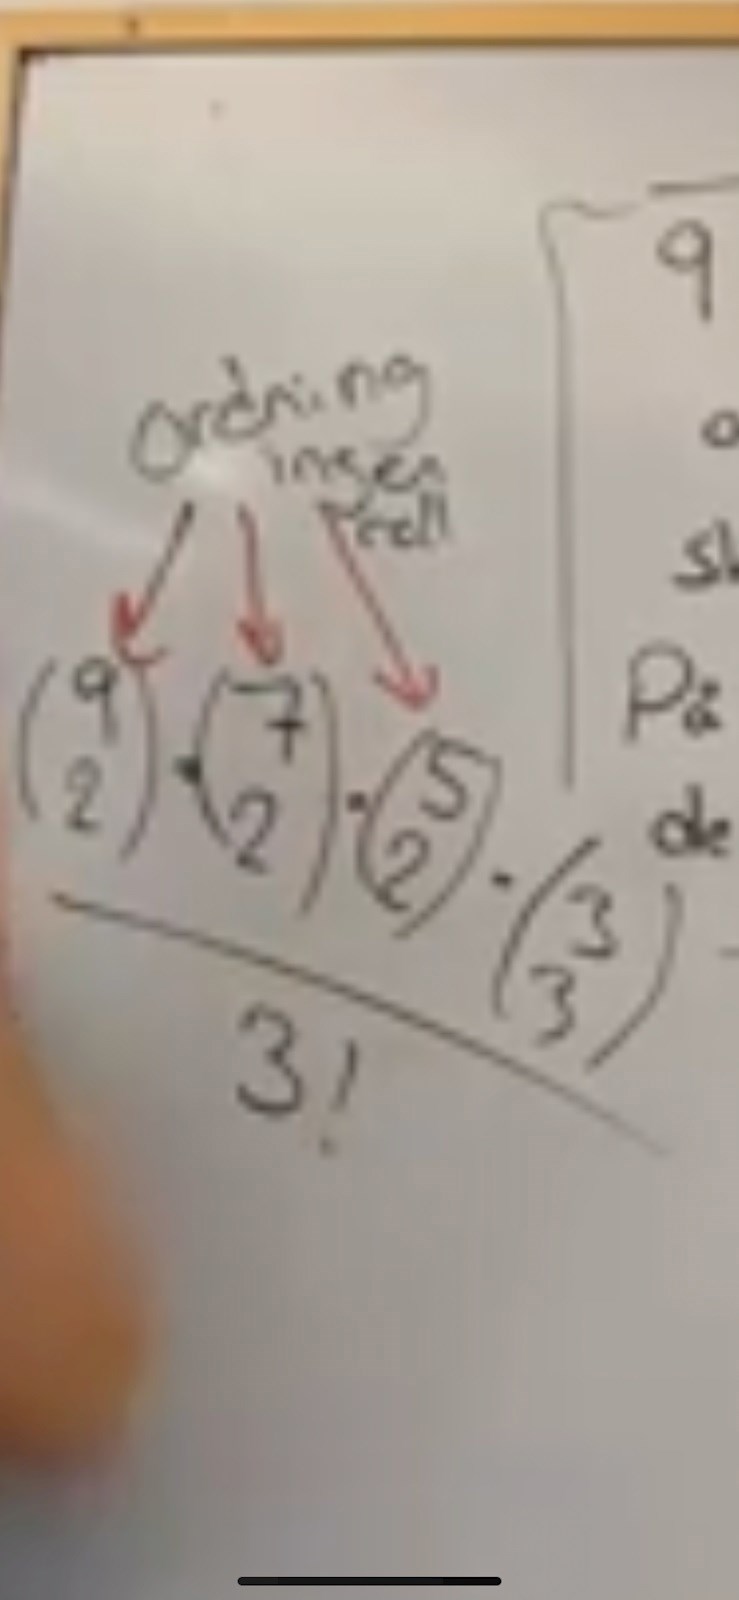 Ordning
ingen
roll
(9 2) · (7 2) · (5 2) · (3 3)
3!
9
På
de